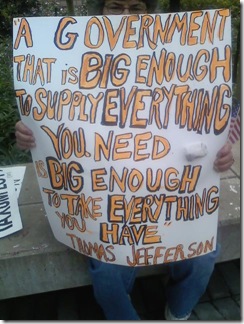 "A GOVERNMENT
THAT iS BIG ENOUGH
TO SUPPLY EVERYTHING
YOU NEED
iS BIG ENOUGH
TO TAKE EVERYTHING
YOU HAVE"
THOMAS JEFFERSON